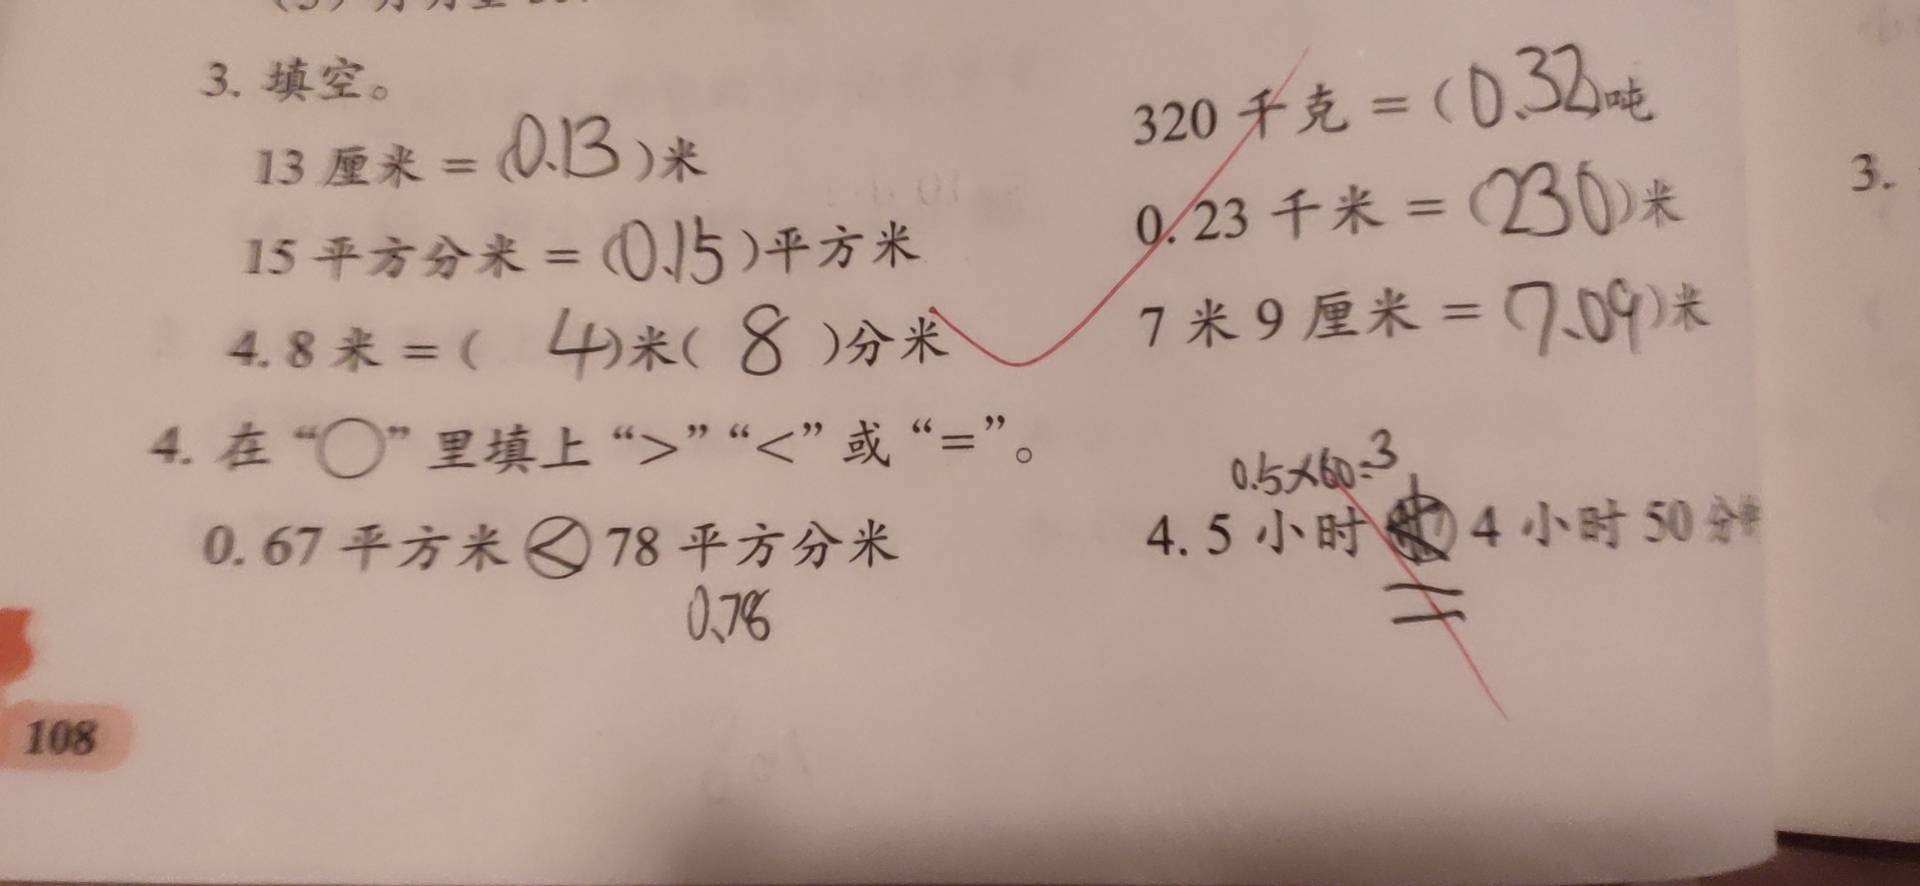 3. 填空。
13 厘米 = (0.13)米
320 千克 = (0.32)吨
15 平方分米 = (0.15)平方米
0.23 千米 = (230)米
4.8 米 = ( 4)米( 8 )分米
7 米 9 厘米 = (7.09)米
4. 在“○”里填上“>”“<”或“=”。
0.5×60=3
0.67 平方米 < 78 平方分米
4.5 小时 4 小时 50 分
0.78
=
108
3.